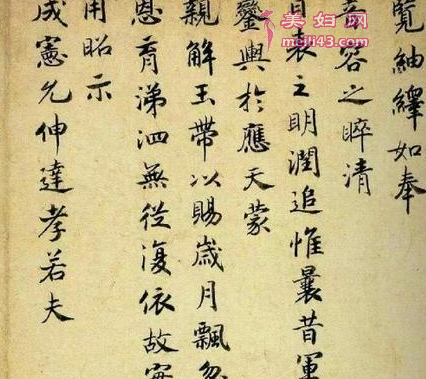 覽紬繹如奉
容之睟清
表之明潤追惟曩昔軍
鑾輿於應天蒙
親解玉帶以賜歲月飄忽
恩育涕泗無從復依故
用昭示
成憲允伸達孝若夫
美妇网